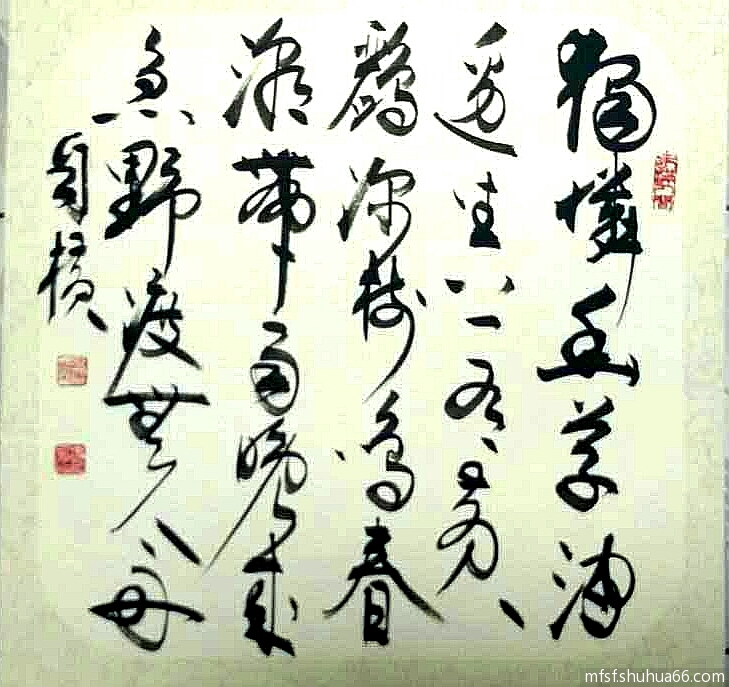 獨憐幽草澗
邊生上有黄
鸝深樹鳴春
潮帶雨晚来
急野渡無人舟
自横
mfsf.shuhua66.com